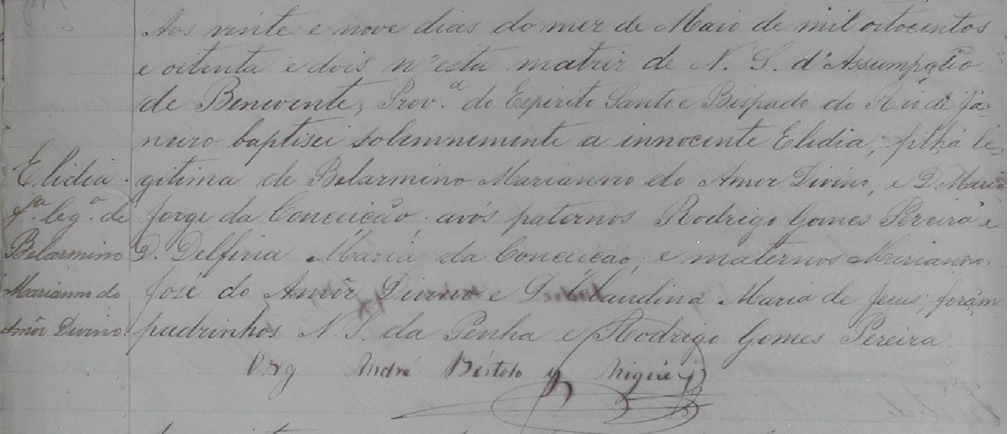 Aos vinte e nove dias do mez de Maio de mil oitocentos
e oitenta e dois n'esta matriz de N. S. d'Assumpção
de Benevente, Prov.ª do Espirito Santo e Bispado do Rio de Ja-
neiro baptisei solemnemente a innocente Elidia, filha le-
Elidia gitima de Belarmino Marianno do Amor Divino, e D. Maria
f.ª leg.ª de Jorge da Conceição: avós paternos Rodrigo Gomes Pereira e
Belarmino D. Delfina Maria da Conceição, e maternos Marianno
Marianno do José do Amôr Divino e D. Claudina Maria de Jesus; forám
Amôr Divino padrinhos N. S. da Penha e Rodrigo Gomes Pereira
Vig André